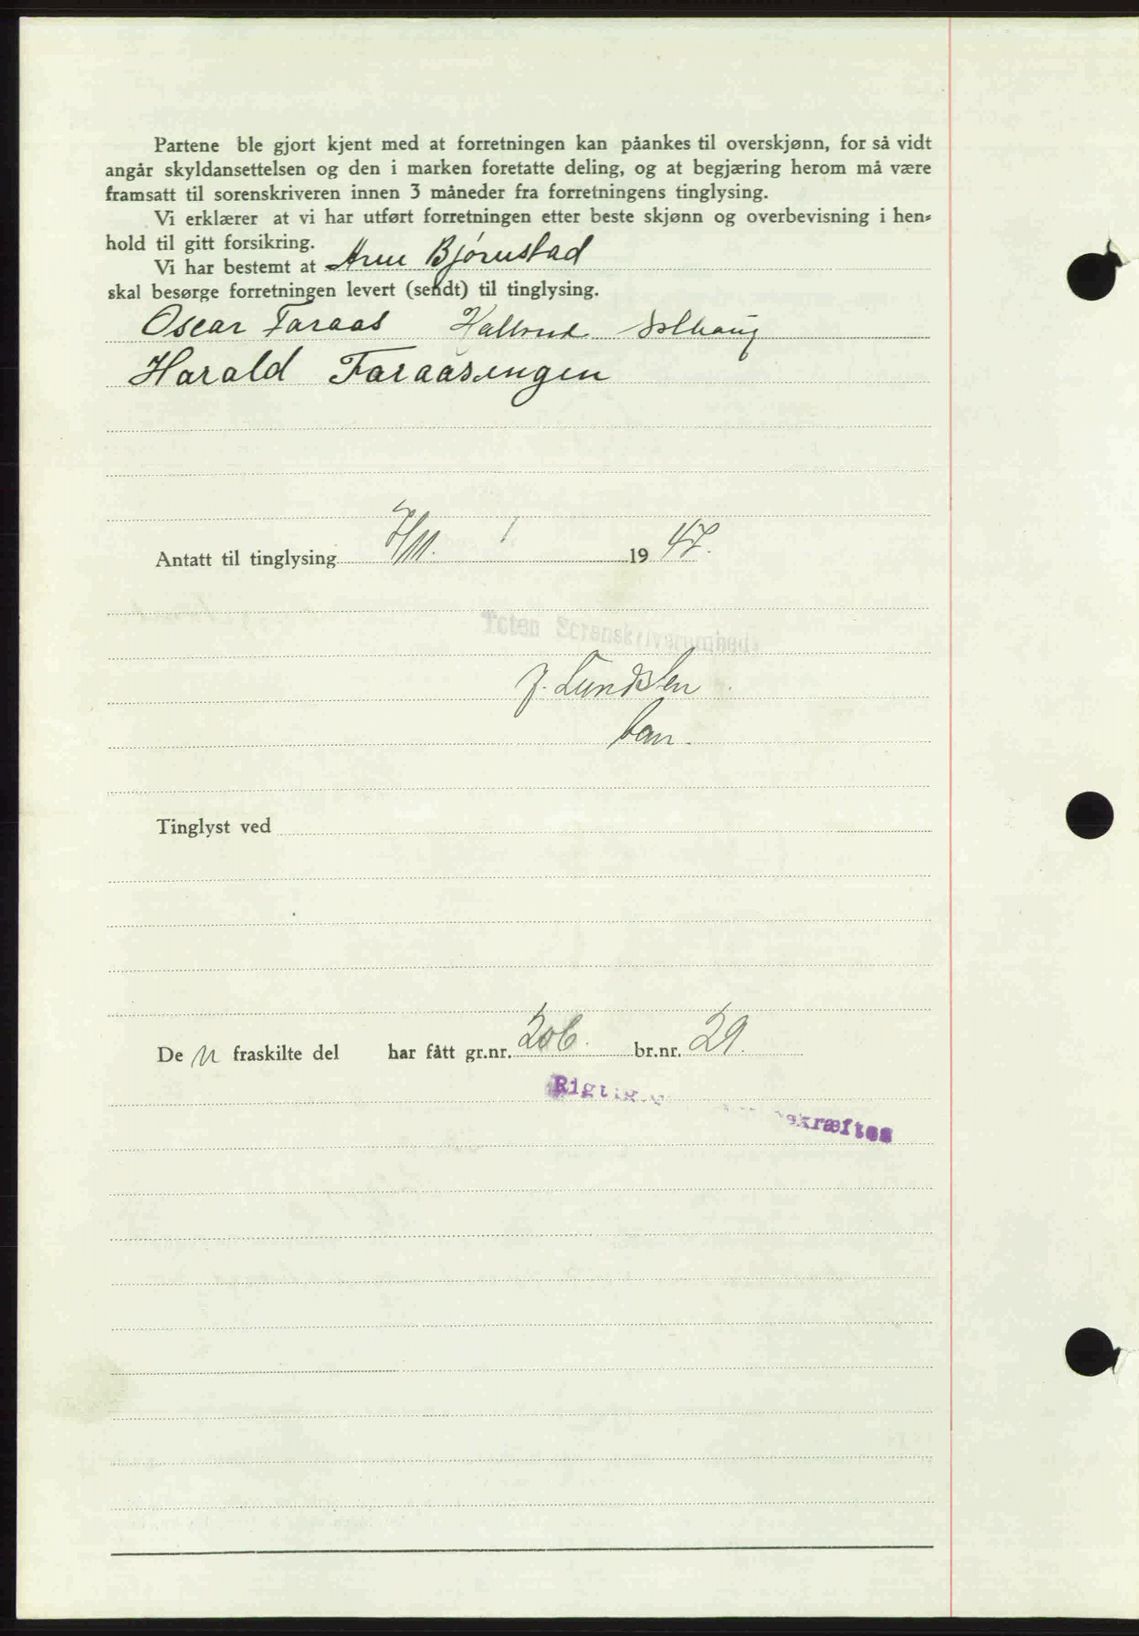 Partene ble gjort kjent med at forretningen kan påankes til overskjønn, for så vidt
angår skyldansettelsen og den i marken foretatte deling, og at begjæring herom må være
framsatt til sorenskriveren innen 3 måneder fra forretningens tinglysing.
Vi erklærer at vi har utført forretningen etter beste skjønn og overbevisning i hen-
hold til gitt forsikring.
Vi har bestemt at Arne Bjørnstad
skal besørge forretningen levert (sendt) til tinglysing.
Oscar Faraas Hallvard Solhaug
Harald Faraasengen
Antatt til tinglysing 7/11. 1947.
Toten Sorenskriverembede
J. Lundsten
Tinglyst ved
De n fraskilte del har fått gr.nr. 206. br.nr. 29.
Rigtig bekræftes